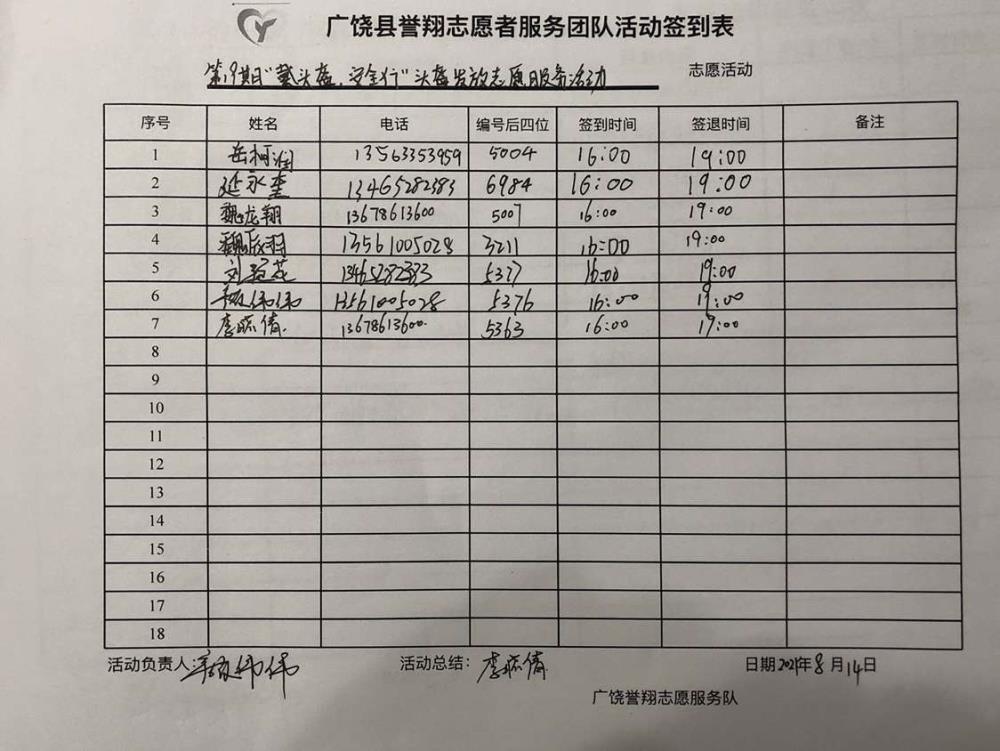 广饶县誉翔志愿者服务团队活动签到表
第19期"戴头盔，安全行"头盔发放志愿服务活动 志愿活动
序号 姓名 电话 编号后四位 签到时间 签退时间 备注
1 岳柯润 13563353959 5004 16:00 19:00
2 延永奎 13465282383 6984 16:00 19:00
3 魏龙翔 13678613600 5007 16:00 19:00
4 魏欣羽 13561005028 3211 16:00 19:00
5 13465282383 5377 16:00 19:00
6 伟伟 13561005028 5376 16:00 19:00
7 李 倩 13678613600 5363 16:00 19:00
8
9
10
11
12
13
14
15
16
17
18
活动负责人: 伟伟 活动总结: 李 倩 日期2021年8月14日
广饶誉翔志愿服务队